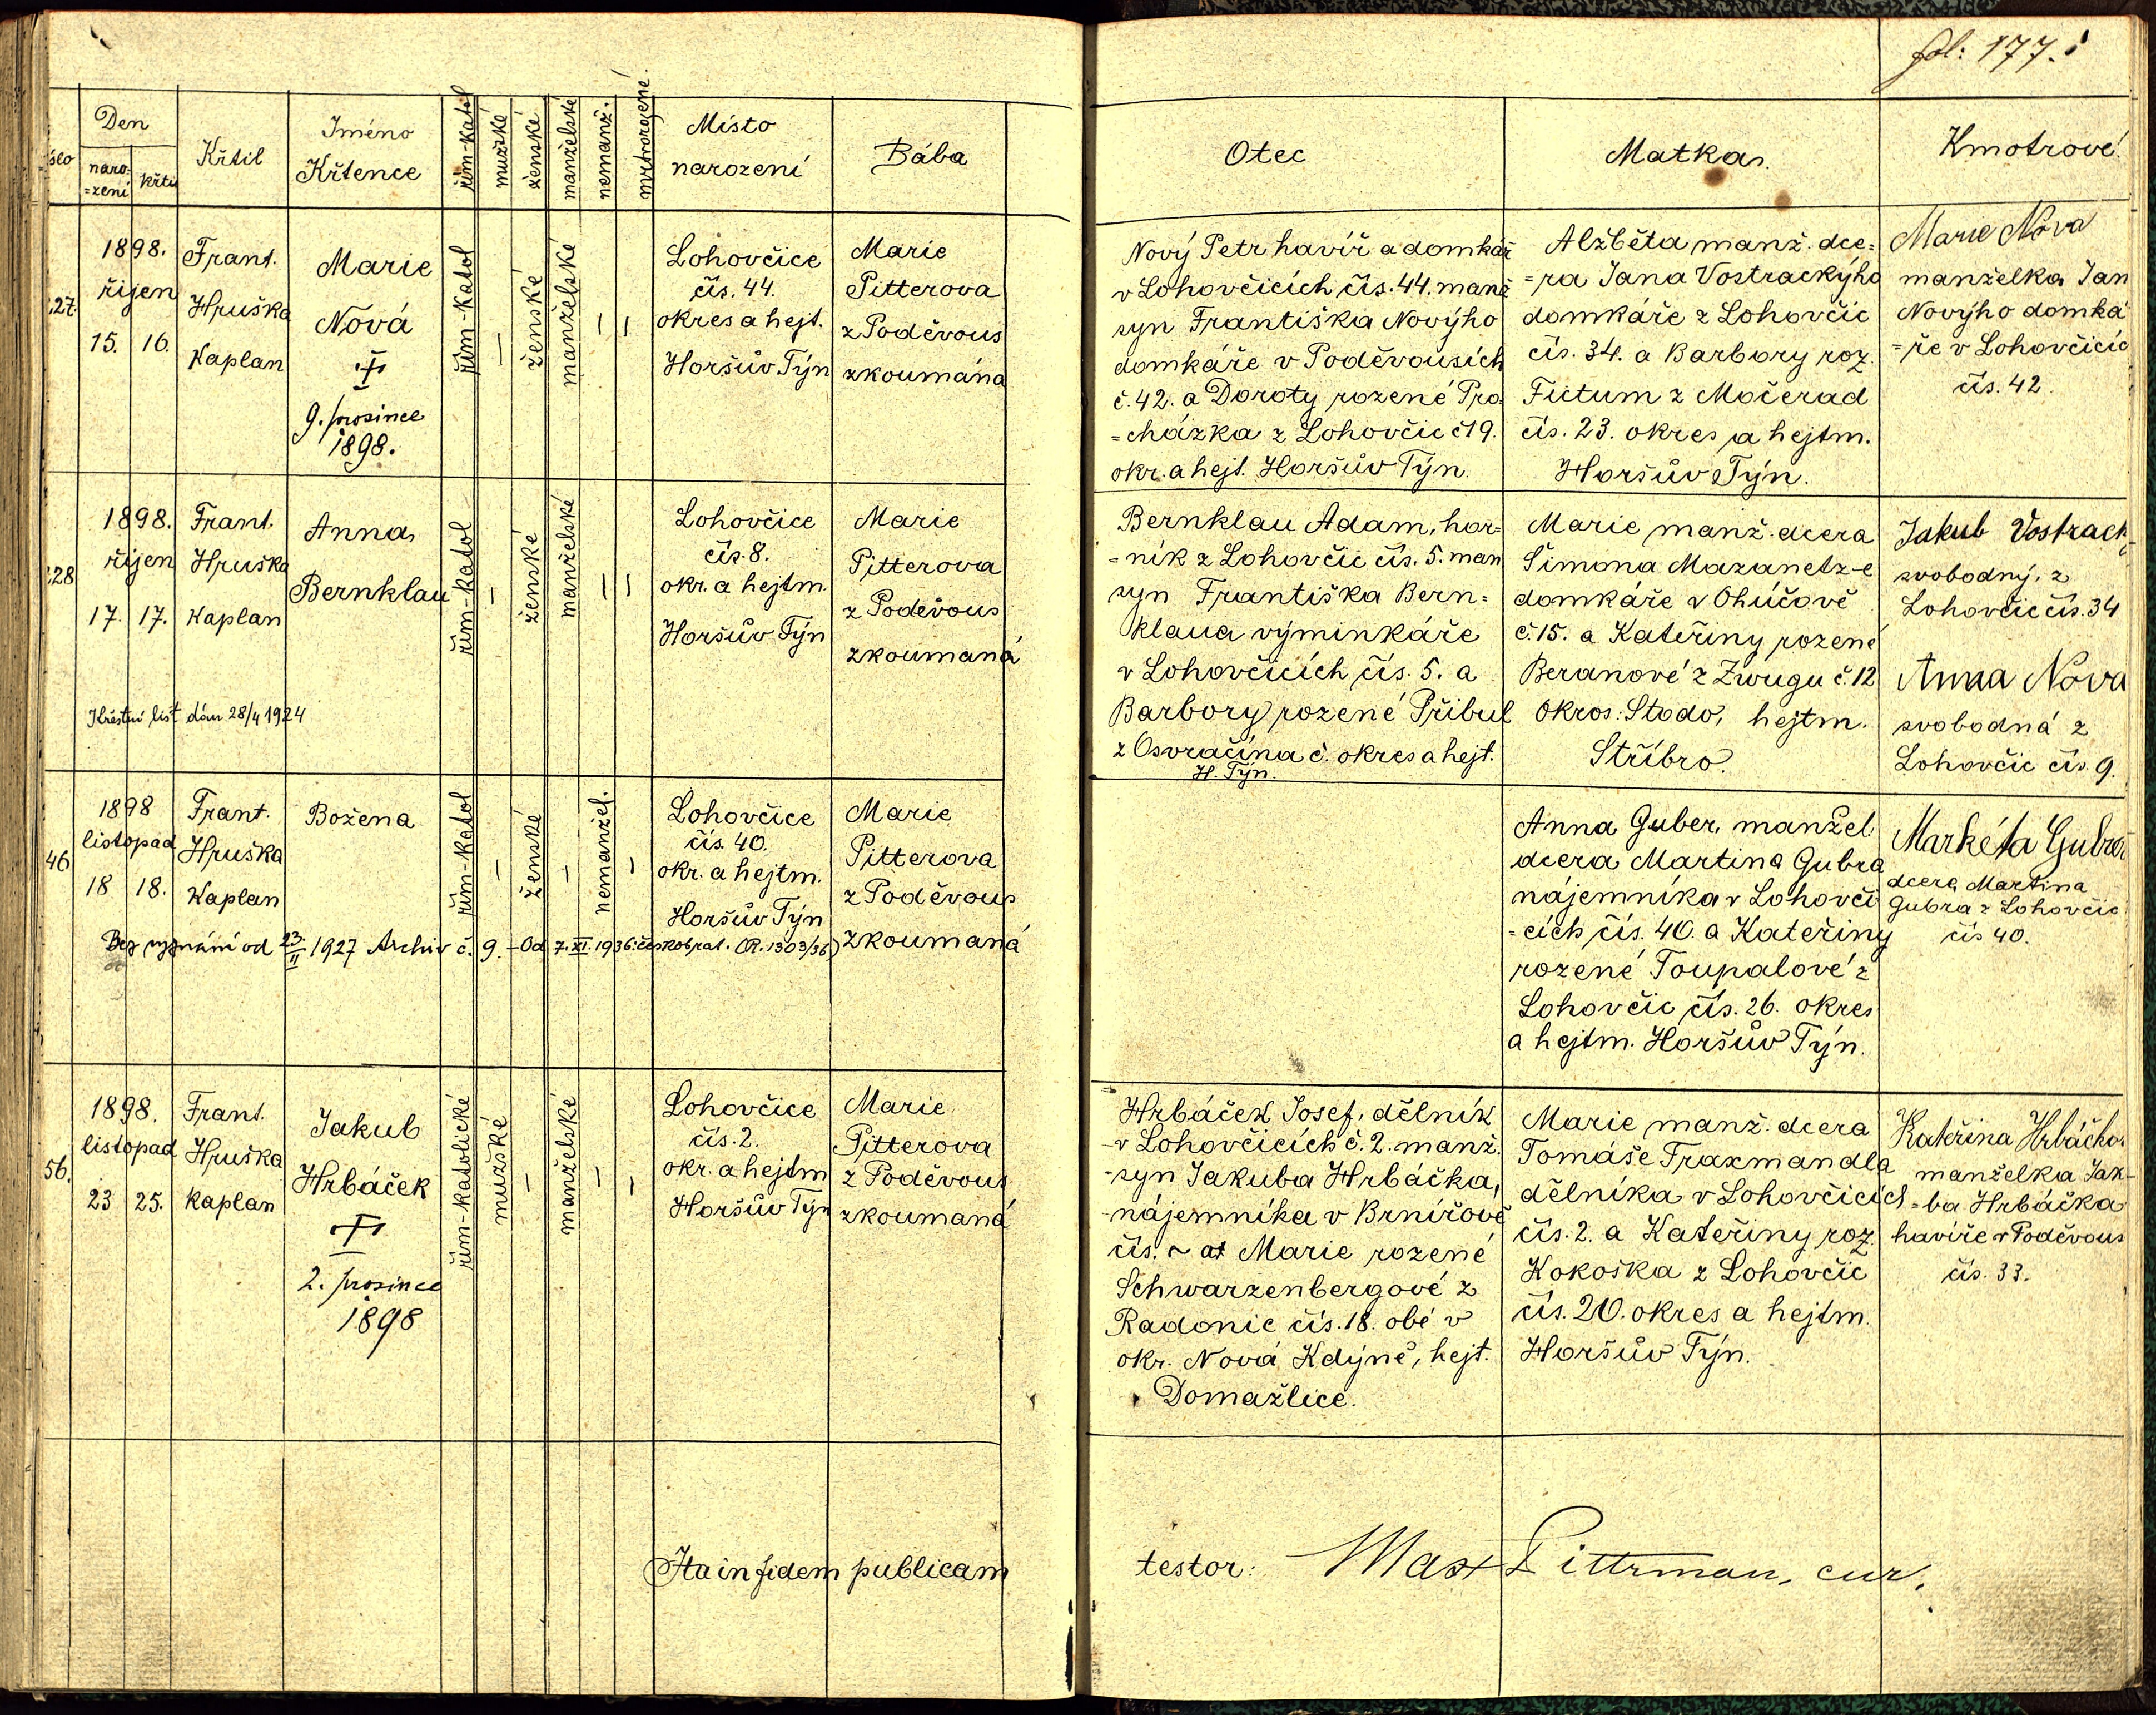 fol: 177.
Den
naro=
=zení
křtu
Křtil
Iméno
Křtence
řím-katol
mužské
ženské
manželské
nemanž.
mrtvorozené.
Místo
narození
Bába
Otec
Matka.
Kmotrové
27.
1898.
říjen
15. 16.
Frant.
Hruška
Kaplan
Marie
Nová
9. prosince
1898.
řím-katol
ženské
manželské
Lohovčice
čís. 44.
okres a hejt.
Horšův Týn
Marie
Pitterova
z Poděvous
zkoumána
Nový Petr havíř a domkář
v Lohovčicích čís. 44. manž
syn Františka Novýho
domkáře v Poděvousích
č. 42. a Doroty rozené Pro=
=cházka z Lohovčic č 19.
okr. a hejt. Horšův Týn.
Alžběta manž. dce=
=ra Iana Vostrackýho
domkáře z Lohovčic
čís. 34. a Barbory roz.
Fictum z Močerad
čís. 23. okres a hejtm.
Horšův Týn.
Marie Nova
manželka Ian
Novýho domká
=ře v Lohovčicíc
čís. 42.
28
1898.
říjen
17. 17.
Frant.
Hruška
Kaplan
Anna
Bernklau
řím-katol
ženské
manželské
Lohovčice
čís. 8.
okr. a hejtm.
Horšův Týn
Marie
Pitterova
z Poděvous
zkoumaná
Křestní list dán 28/4 1924
Bernklau Adam, hor=
=ník z Lohovčic čís. 5. man
syn Františka Bern=
klaua výminkáře
v Lohovčicích čís. 5. a
Barbory rozené Přibul
z Osvračína č. okres a hejt.
H. Týn.
Marie manž. dcera
Šimona Mazanetz-e
domkáře v Ohúčově
č. 15. a Kateřiny rozené
Beranové z Zwugu č. 12
Okres: Stodo, hejtm.
Stříbro.
Jakub Vostrack
svobodný, z
Lohovčic čís. 34
Anna Nova
svobodná z
Lohovčic čís. 9.
46
1898
listopad
18 18.
Frant.
Hruška
Kaplan
Božena
řím-katol
ženské
nemanžel.
Lohovčice
čís. 40.
okr. a hejtm.
Horšův Týn
Marie
Pitterova
z Poděvous
zkoumaná
Bez vyznání od 23/II 1927 Archiv č. 9. - Od 7. XI. 1936: českobrat. (P. 1303/36)
Anna Guber, manžel
dcera Martina Gubra
nájemníka v Lohovči
=cích čís. 40. a Kateřiny
rozené Toupalové z
Lohovčic čís. 26. okres
a hejtm. Horšův Týn.
Markéta Gubrov
dcera Martina
Gubra z Lohovčic
čís 40.
56.
1898.
listopad
23 25.
Frant.
Hruška
Kaplan
Iakub
Hrbáček
2. prosince
1898
řím-katolické
mužské
manželské
Lohovčice
čís. 2.
okr. a hejtm
Horšův Týn
Marie
Pitterova
z Poděvous
zkoumaná
Hrbáček Iosef, dělník
v Lohovčicích č. 2. manž.
syn Iakuba Hrbáčka,
nájemníka v Brnířově
čís. ~ a Marie rozené
Schwarzenbergové z
Radonic čís. 18. obé v
okr. Nová Kdýně, hejt.
Domažlice.
Marie manž. dcera
Tomáše Traxmandla
dělníka v Lohovčicích
čís. 2. a Kateřiny roz.
Kokoška z Lohovčic
čís. 20. okres a hejtm.
Horšův Týn.
Kateřina Hrbáčko
manželka Iak-
=ba Hrbáčka
havíře v Poděvous
čís. 33.
Ita in fidem publicam testor: Max Pittrman, cur.